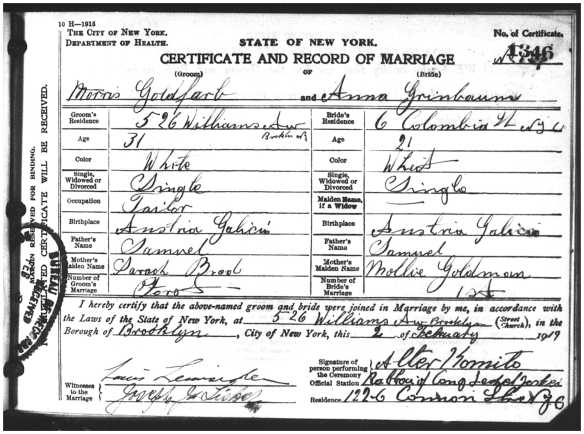 10 H—1915
THE CITY OF NEW YORK.
DEPARTMENT OF HEALTH.
STATE OF NEW YORK.
No. of Certificate.
1346
CERTIFICATE AND RECORD OF MARRIAGE
(Groom) OF (Bride)
Morris Goldfarb and Anna Grinbaum
Groom's Residence 526 Williams Ave Brooklyn Bride's Residence 6 Colombia St N.Y.C
Age 31 Age 21
Color White Color White
Single, Widowed or Divorced Single Single, Widowed or Divorced Single
Occupation Tailor Maiden Name, if a Widow —
Birthplace Austria Galicia Birthplace Austria Galicia
Father's Name Samuel Father's Name Samuel
Mother's Maiden Name Sarah Mother's Maiden Name Mollie Goldman
Number of Groom's Marriage First Number of Bride's Marriage 1st
I hereby certify that the above-named groom and bride were joined in Marriage by me, in accordance with
the Laws of the State of New York, at 526 Williams Av Brooklyn (Street Church), in the
Borough of Brooklyn, City of New York, this 2 of February 1919
Signature of person performing the Ceremony Alter Komito
Witnesses to the Marriage Louis
Joseph
Official Station Rabbi of Cong
Residence 122-6 N.Y.C
MARGIN RESERVED FOR BINDING.
CERTIFICATE WILL BE RECEIVED.
BUREAU
RECEIVED
FEB